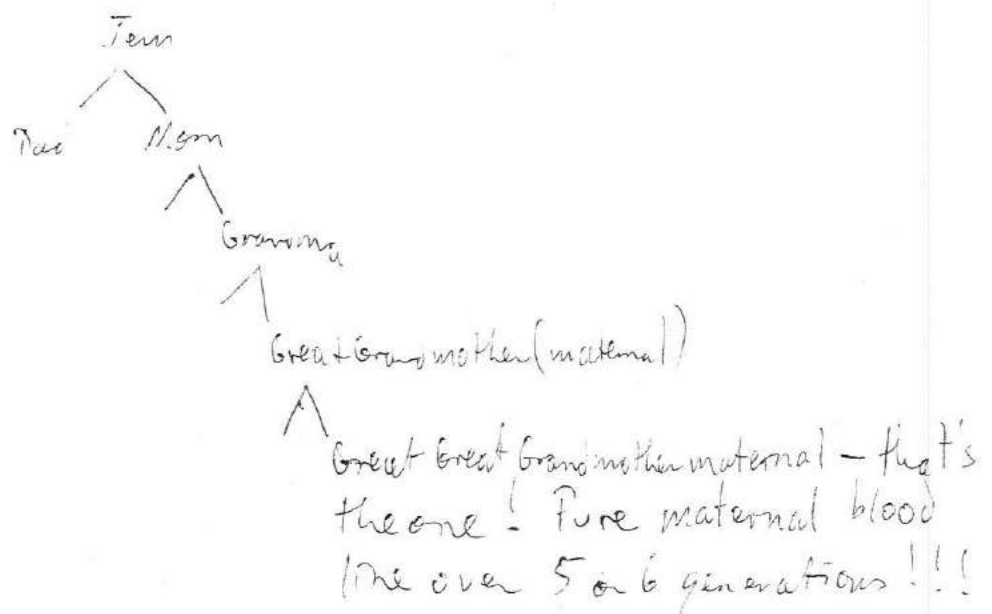 Jem
Dad Mom
Grandma
Great Grandmother (maternal)
Great Great Grandmother maternal – that's
the one! Pure maternal blood
line over 5 or 6 generations!!!